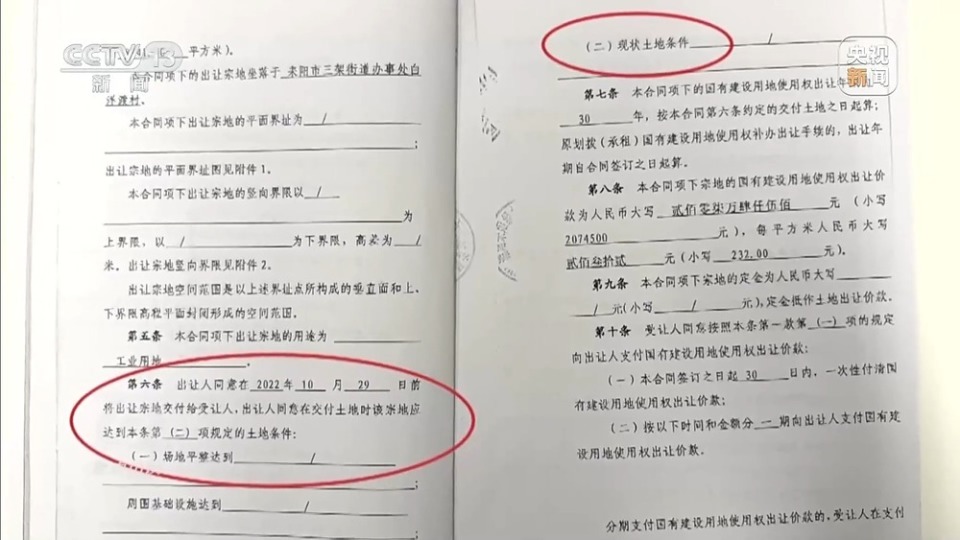 CCTV 13
新闻
央视
新闻
平方米）。
本合同项下的出让宗地坐落于 耒阳市三架街道办事处白
洋渡村。
本合同项下出让宗地的平面界址为 /
；
出让宗地的平面界址图见附件1。
本合同项下出让宗地的竖向界限以 /
为
上界限，以 / 为下界限，高差为 /
米。出让宗地竖向界限见附件2。
出让宗地空间范围是以上述界址点所构成的垂直面和上、
下界限高程平面封闭形成的空间范围。
第五条 本合同项下出让宗地的用途为
工业用地 。
第六条 出让人同意在 2022 年 10 月 29 日前
将出让宗地交付给受让人，出让人同意在交付土地时该宗地应
达到本条第 （二） 项规定的土地条件：
（一）场地平整达到 /
；
周围基础设施达到 /
（二）现状土地条件 /
第七条 本合同项下的国有建设用地使用权出让年
30 年，按本合同第六条约定的交付土地之日起算；
原划拨（承租）国有建设用地使用权补办出让手续的，出让年
期自合同签订之日起算。
第八条 本合同项下宗地的国有建设用地使用权出让价
款为人民币大写 贰佰零柒万肆仟伍佰 元（小写
2074500 元），每平方米人民币大写
贰佰叁拾贰 元（小写 232.00 元）。
第九条 本合同项下宗地的定金为人民币大写
/ 元（小写 / 元），定金抵作土地出让价款。
第十条 受让人同意按照本条第一款第 （一） 项的规定
向出让人支付国有建设用地使用权出让价款：
（一）本合同签订之日起 30 日内，一次性付清国
有建设用地使用权出让价款；
（二）按以下时间和金额分 一 期向出让人支付国有建
设用地使用权出让价款。
分期支付国有建设用地使用权出让价款的，受让人在支付